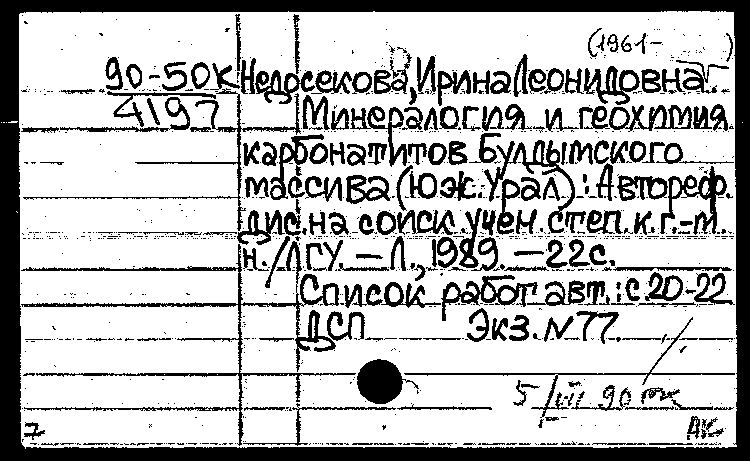 (1961- )
90-50к Недосекова, Ирина Леонидовна.
4197 Минералогия и геохимия
карбонатитов Булдымского
массива (Юж. Урал) : Автореф.
дис. на соиск. учен. степ. к. г.-м.
н. / ЛГУ. — Л., 1989. — 22 с.
Список работ авт.: с. 20-22
ДСП Экз. № 77.
5/III 90
7 АК